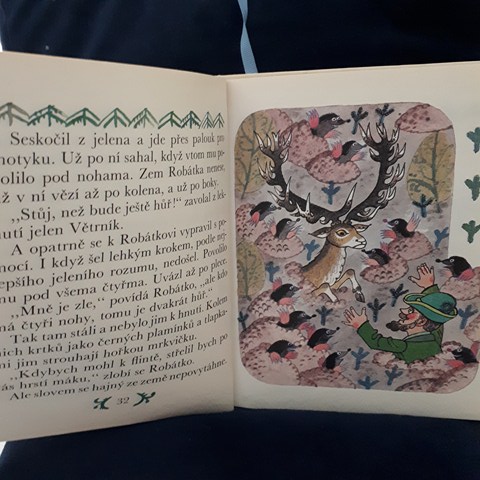 Seskočil z jelena a jde přes palouk pro
motyku. Už po ní sahal, když vtom mu po-
volilo pod nohama. Zem Robátka nenese,
už v ní vězí až po kolena, a už po boky.
„Stůj, než bude ještě hůř!“ zavolal z lek-
nutí jelen Větrník.
A opatrně se k Robátkovi vypravil s po-
mocí. I když šel lehkým krokem, podle nej-
lepšího jeleního rozumu, nedošel. Povolilo
mu pod všema čtyřma. Uvázl až po plece.
„Mně je zle,“ povídá Robátko, „ale kdo
má čtyři nohy, tomu je dvakrát hůř.“
Tak tam stáli a nebylo jim k hnutí. Kolem
nich krtků jako černých plamínků a tlapka-
mi jim strouhají hořkou mrkvičku.
„Kdybych mohl k flintě, střelil bych po
vás hrstí máku,“ zlobí se Robátko.
Ale slovem se hajný ze země nepovytáhne.
32